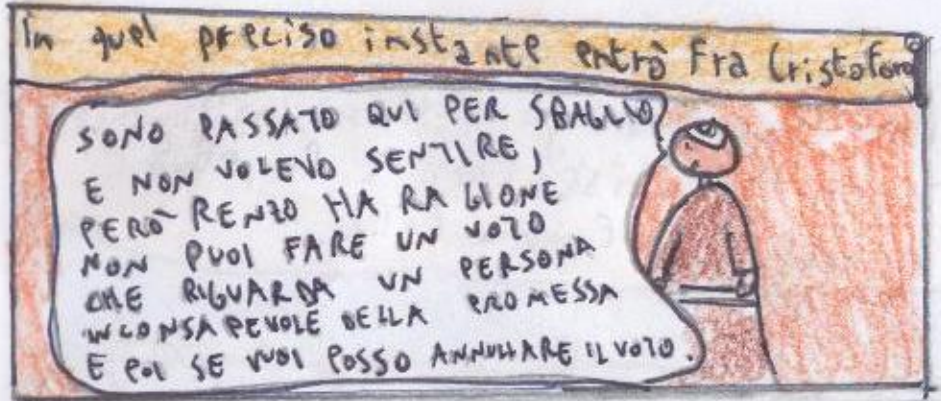 In quel preciso instante entrò Fra Cristoforo
SONO PASSATO QUI PER SBAGLIO
E NON VOLEVO SENTIRE,
PERÒ RENZO HA RAGIONE
NON PUOI FARE UN VOTO
CHE RIGUARDA UN PERSONA
INCONSAPEVOLE DELLA PROMESSA
E POI SE VUOI POSSO ANNULLARE IL VOTO.